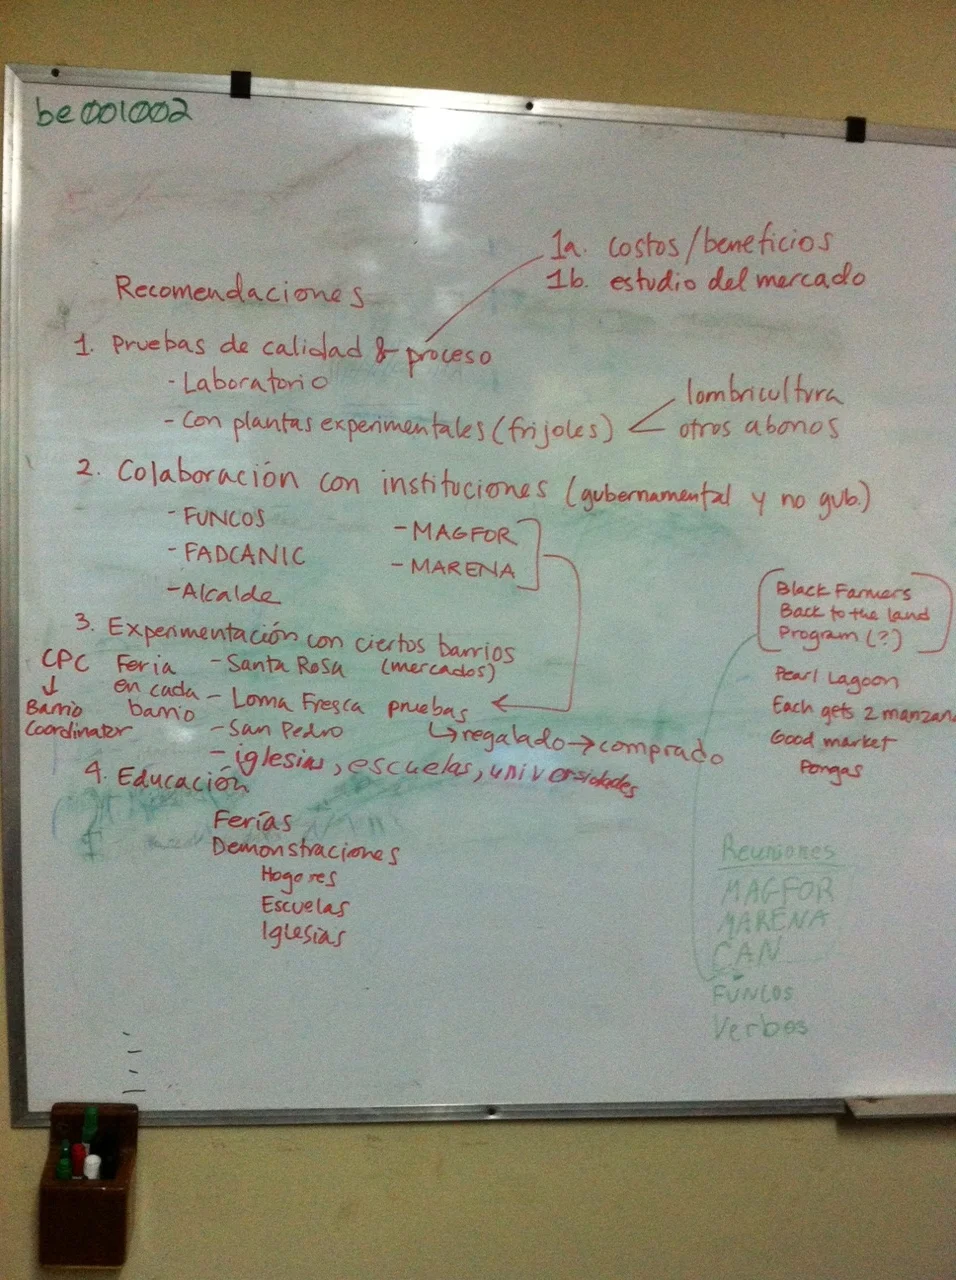 be001002
1a. costos/beneficios
1b. estudio del mercado
Recomendaciones
1. Pruebas de calidad & proceso
- Laboratorio
- Con plantas experimentales (frijoles)
lombricultura
otros abonos
2. Colaboración con instituciones (gubernamental y no gub.)
- FUNCOS
- FADCANIC
- Alcalde
- MAGFOR
- MARENA
3. Experimentación con ciertos barrios
(mercados)
CPC
↓
Barrio
Coordinator
Feria
en cada
barrio
- Santa Rosa
- Loma Fresca
- San Pedro
- iglesias, escuelas, universidades
pruebas
↳ regalado → comprado
4. Educación
Ferías
Demonstraciones
Hogares
Escuelas
Iglesias
Black Farmers
Back to the land
Program (?)
Pearl Lagoon
Each gets 2 manzan
Good market
Pongas
Reuniones
MAGFOR
MARENA
CAN
FUNCOS
Verbos